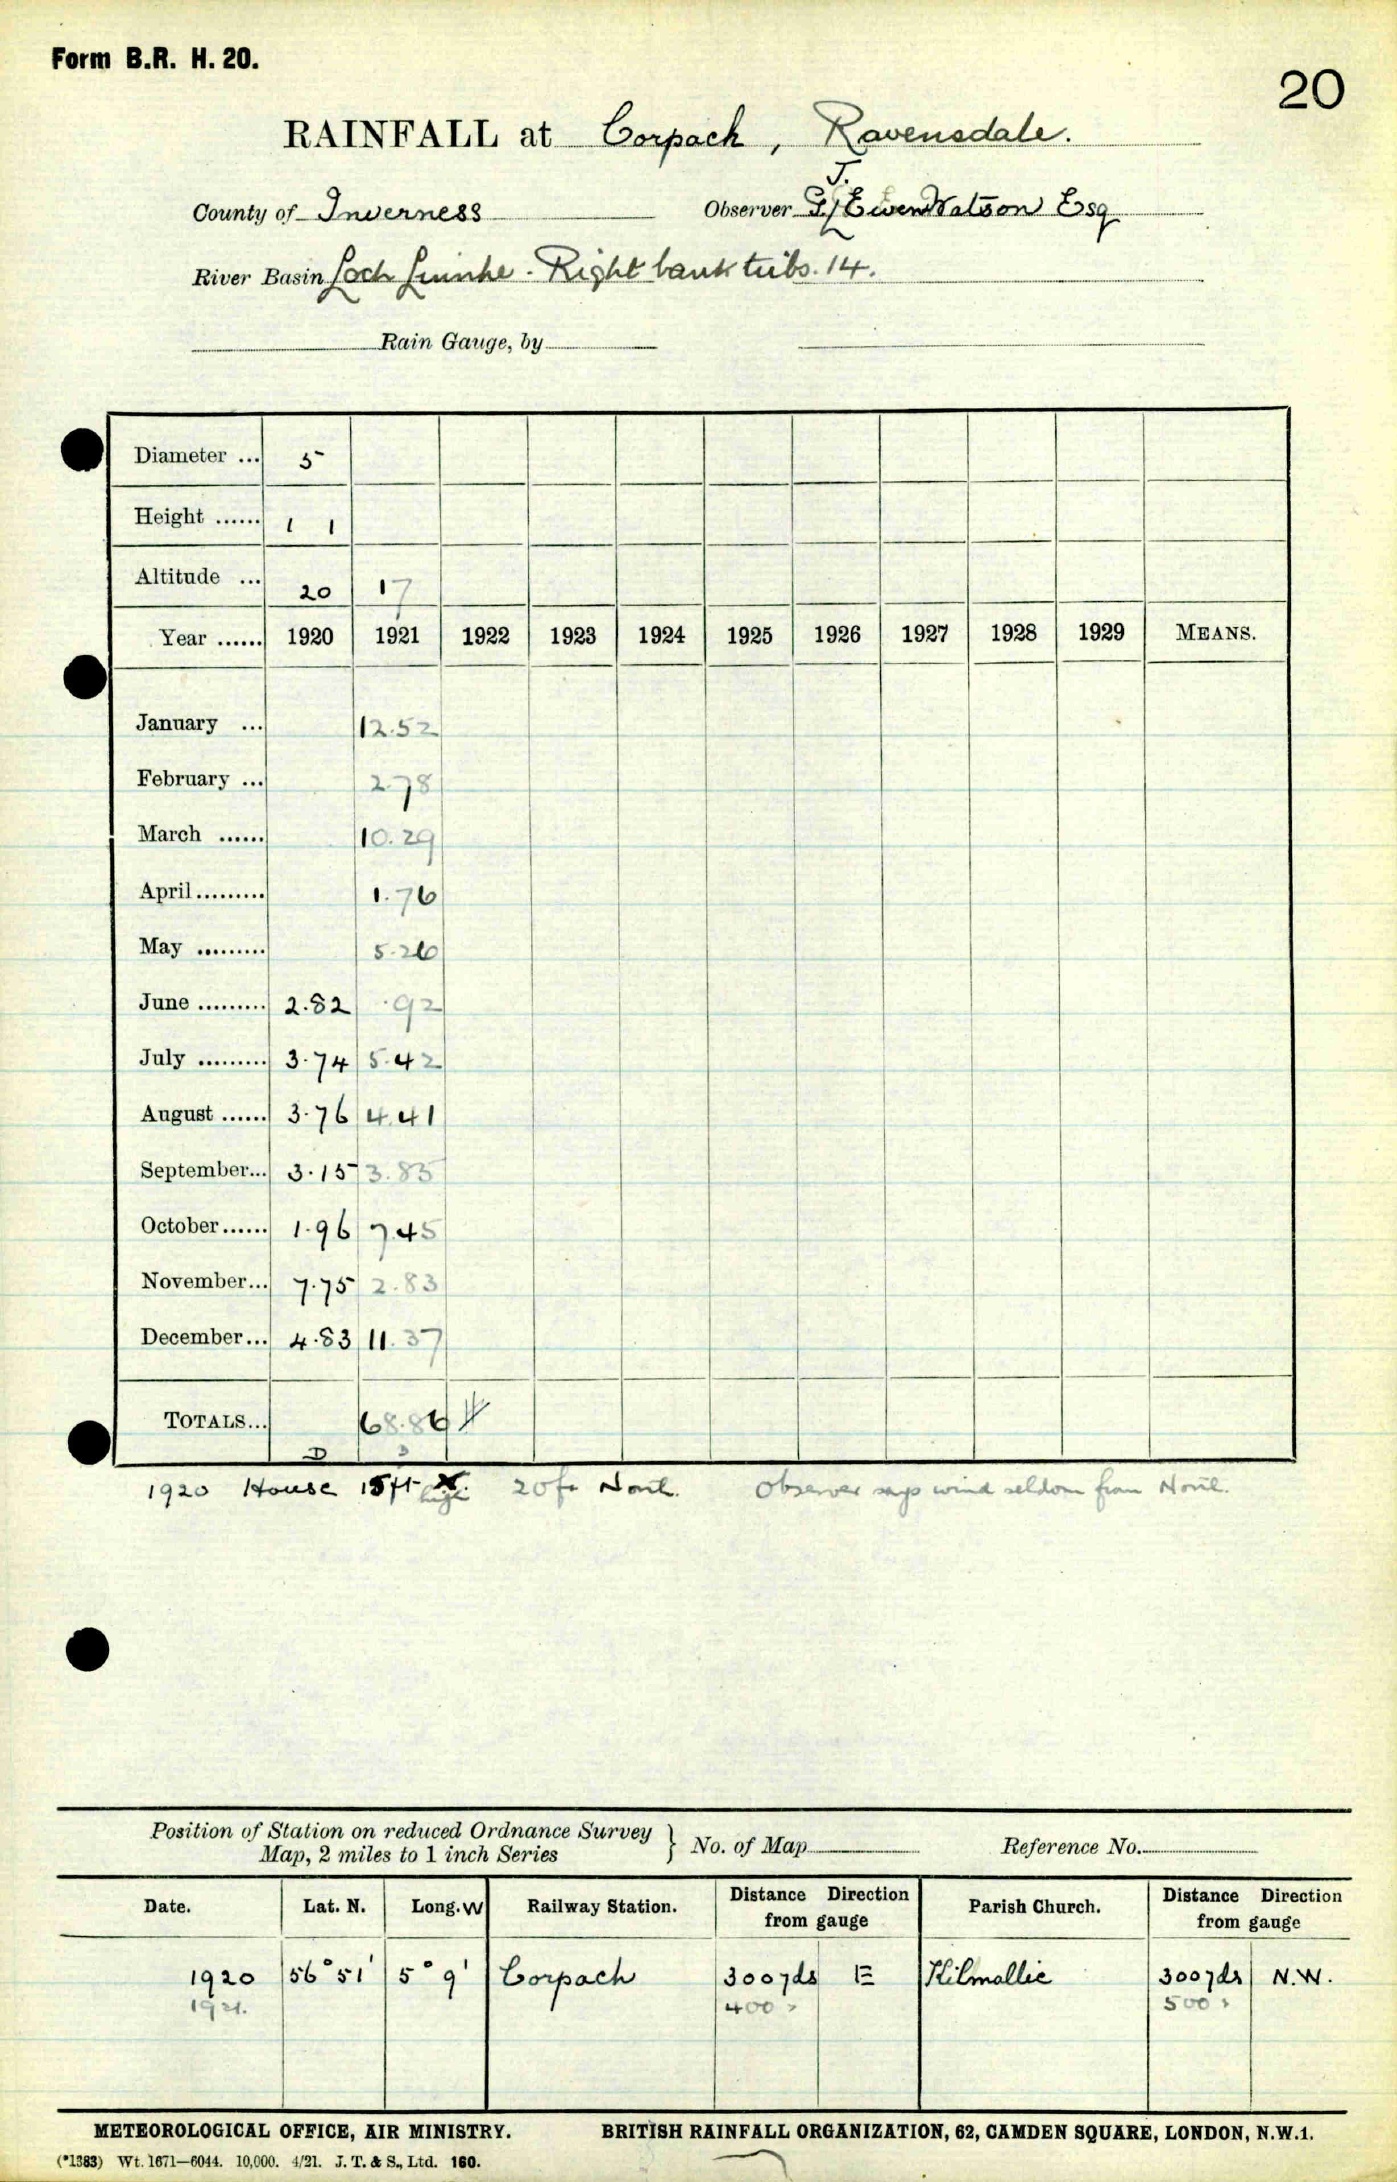 Form B.R. H. 20.
20
RAINFALL at Corpach, Ravensdale.
J.
County of Inverness Observer Ewen Watson Esq
River Basin Loch Linnhe - Right bank tribs. 14.
Rain Gauge, by
Diameter ... 5
Height ...... 1 1
Altitude ... 20 17
Year ...... 1920 1921 1922 1923 1924 1925 1926 1927 1928 1929 MEANS.
January ... 12.52
February ... 2.78
March ...... 10.29
April......... 1.76
May ......... 5.26
June ......... 2.82 .92
July ......... 3.74 5.42
August ...... 3.76 4.41
September... 3.15 3.85
October...... 1.96 7.45
November... 7.75 2.83
December... 4.83 11.37
TOTALS... 68.86
D D
1920 House 15ft high 20ft North. Observer says wind seldom from North.
Position of Station on reduced Ordnance Survey
Map, 2 miles to 1 inch Series } No. of Map Reference No.
Date. Lat. N. Long. W Railway Station. Distance Direction from gauge Parish Church. Distance Direction from gauge
1920 56° 51' 5° 9' Corpach 300yds E Kilmallie 300yds N.W.
1921. 400 " 500 "
METEOROLOGICAL OFFICE, AIR MINISTRY. BRITISH RAINFALL ORGANIZATION, 62, CAMDEN SQUARE, LONDON, N.W.1.
(*1383) Wt. 1671—6044. 10,000. 4/21. J. T. & S., Ltd. 160.